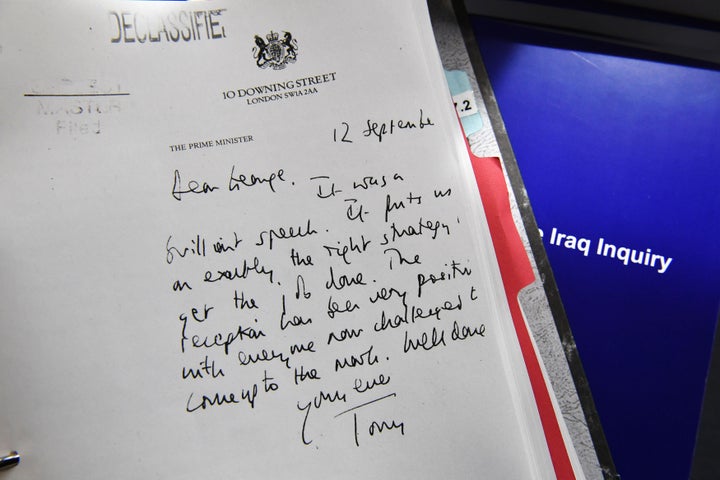 DECLASSIFIED
MASTER
Filed
10 DOWNING STREET
LONDON SW1A 2AA
THE PRIME MINISTER
12 September
Dear George. It was a
brilliant speech. It puts us
on exactly the right strategy to
get the job done. The
reception has been very positive
with everyone now challenged to
come up to the mark. Well done
Yours ever
Tony
7.2
Iraq Inquiry